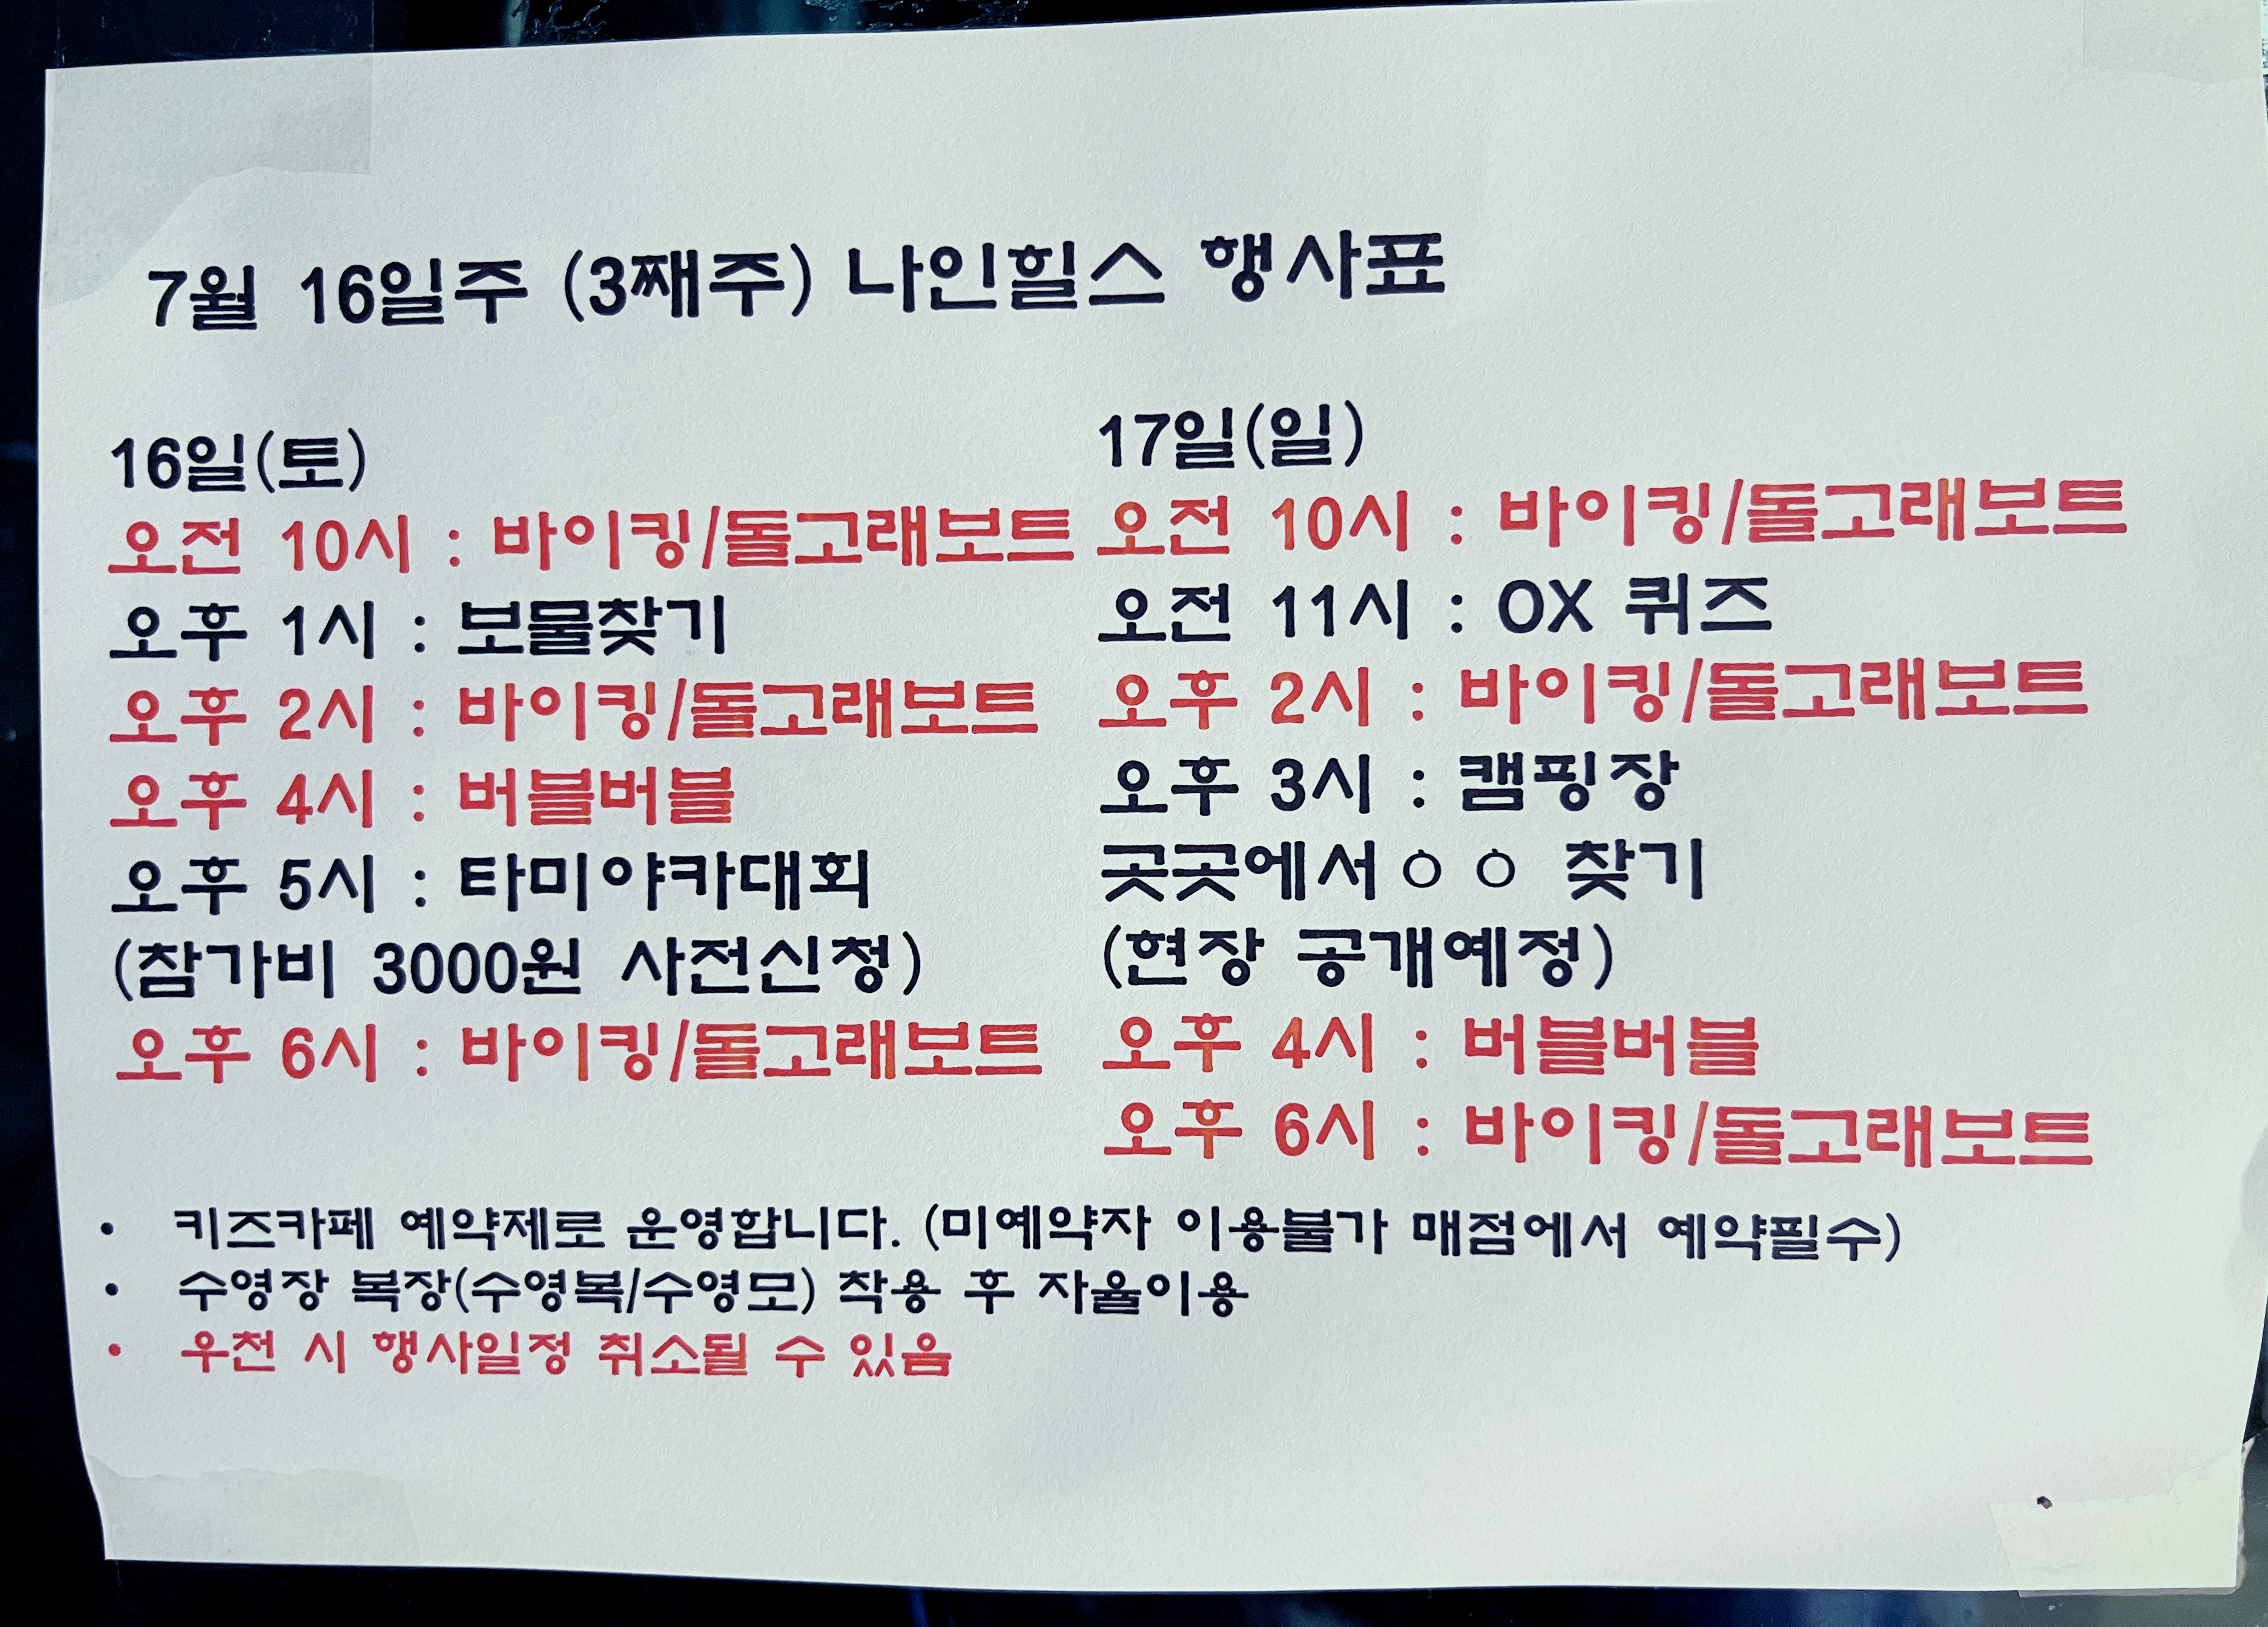 7월 16일주 (3째주) 나인힐스 행사표
16일(토)
오전 10시 : 바이킹/돌고래보트
오후 1시 : 보물찾기
오후 2시 : 바이킹/돌고래보트
오후 4시 : 버블버블
오후 5시 : 타미야카대회
(참가비 3000원 사전신청)
오후 6시 : 바이킹/돌고래보트
17일(일)
오전 10시 : 바이킹/돌고래보트
오전 11시 : OX 퀴즈
오후 2시 : 바이킹/돌고래보트
오후 3시 : 캠핑장
곳곳에서ㅇㅇ 찾기
(현장 공개예정)
오후 4시 : 버블버블
오후 6시 : 바이킹/돌고래보트
• 키즈카페 예약제로 운영합니다. (미예약자 이용불가 매점에서 예약필수)
• 수영장 복장(수영복/수영모) 착용 후 자율이용
• 우천 시 행사일정 취소될 수 있음